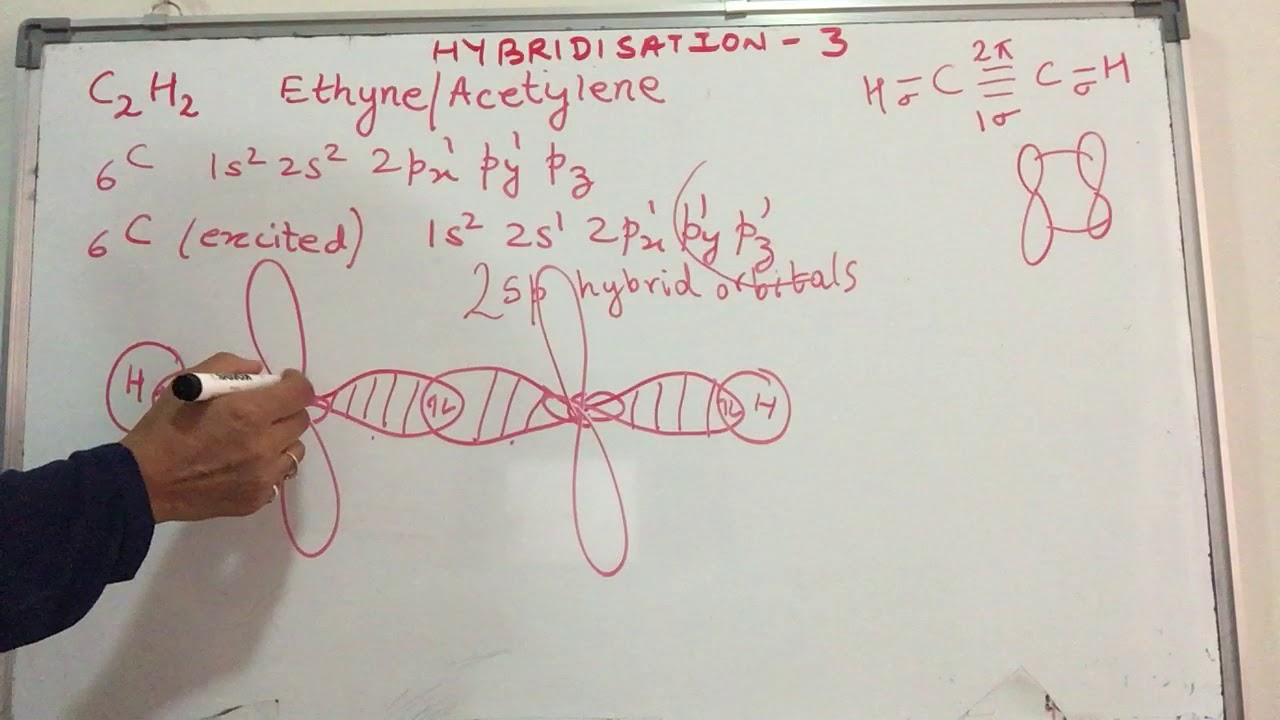 HYBRIDISATION - 3
C₂H₂ Ethyne/Acetylene
H-σ C 2π ≡ 1σ C -σ H
₆C 1s² 2s² 2px¹ py¹ pz
₆C (excited) 1s² 2s¹ 2px¹ py¹ pz¹
2sp hybrid orbitals
H H